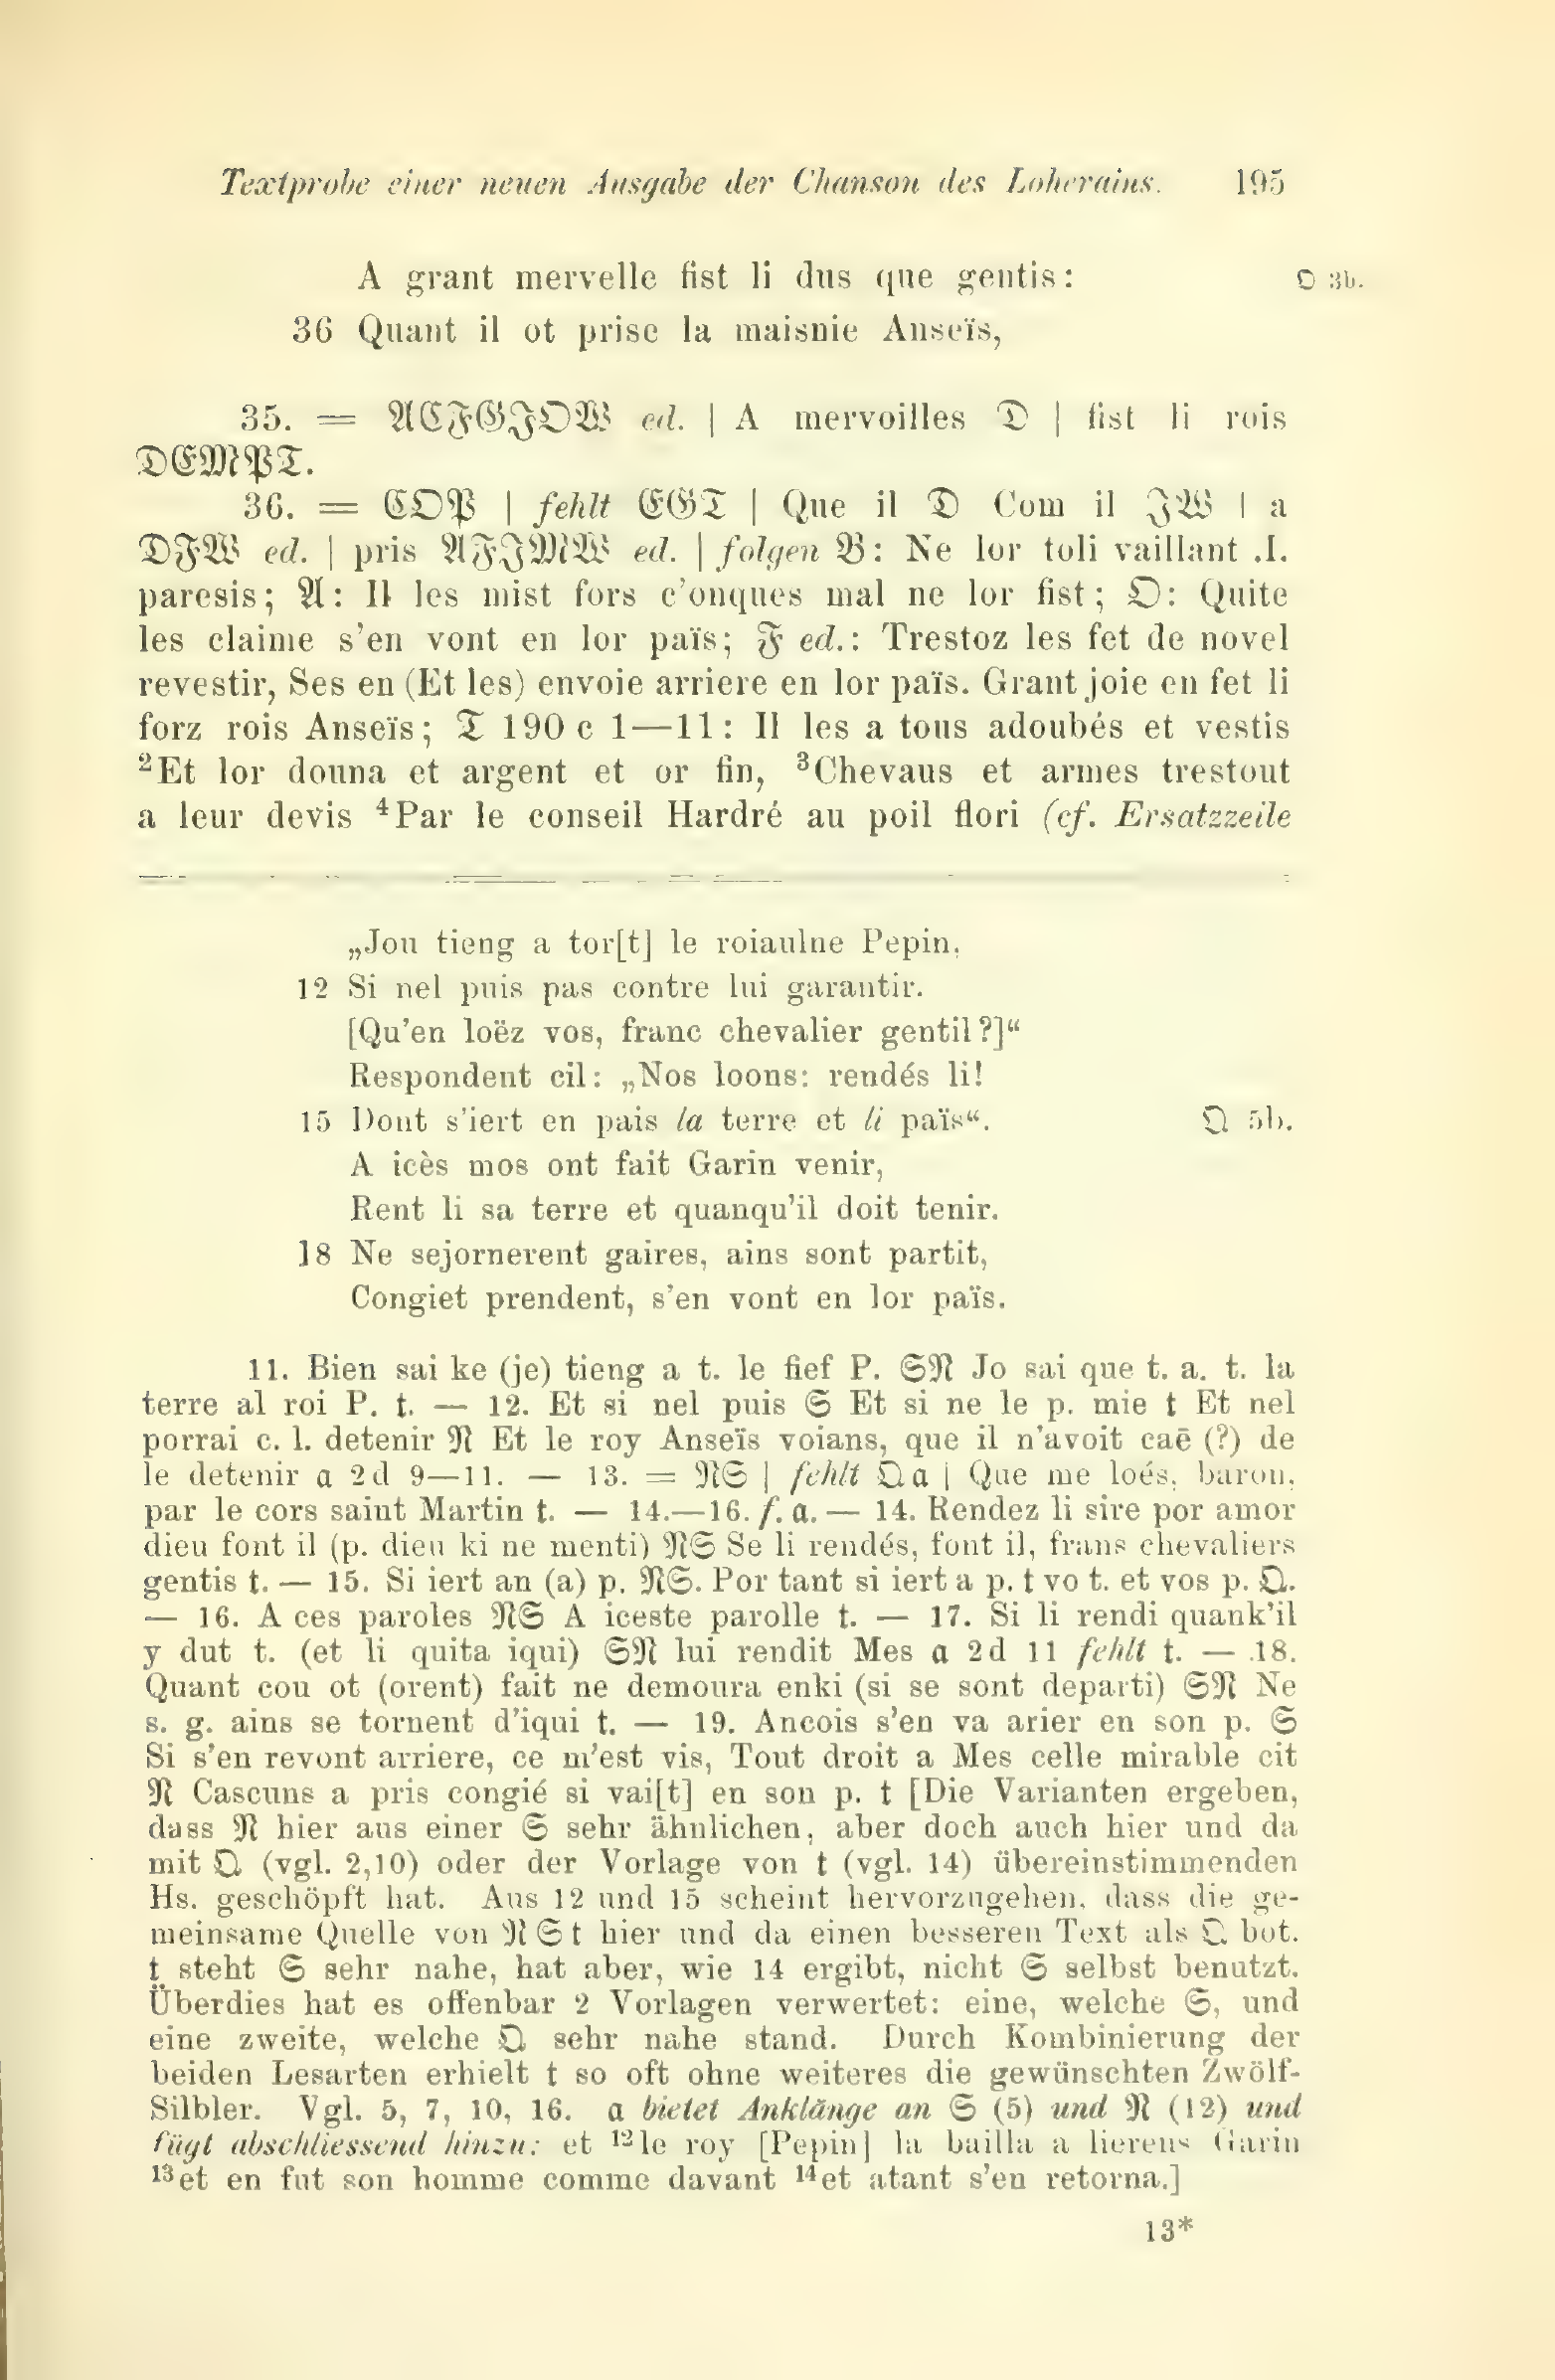 Textprobe einer neuen Ausgabe der Chanson des Loherains. 195
A grant mervelle fist li dus que gentis: O 3b.
36 Quant il ot prise la maisnie Anseïs,
35. = 𝔄ℭ𝔉𝔊𝔍𝔒𝔚 ed. | A mervoilles 𝔇 | fist li rois
𝔇𝔈𝔐𝔓𝔗.
36. = ℭ𝔒𝔓 | fehlt 𝔈𝔊𝔗 | Que il 𝔇 Com il 𝔍𝔚 | a
𝔇𝔉𝔚 ed. | pris 𝔄𝔉𝔍𝔐𝔚 ed. | folgen 𝔅: Ne lor toli vaillant .I.
paresis; 𝔄: Il les mist fors c'onques mal ne lor fist; 𝔒: Quite
les claime s'en vont en lor païs; 𝔉 ed.: Trestoz les fet de novel
revestir, Ses en (Et les) envoie arriere en lor païs. Grant joie en fet li
forz rois Anseïs; 𝔗 190 c 1—11: Il les a tous adoubés et vestis
²Et lor douna et argent et or fin, ³Chevaus et armes trestout
a leur devis ⁴Par le conseil Hardré au poil flori (cf. Ersatzzeile
„Jou tieng a tor[t] le roiaulne Pepin,
12 Si nel puis pas contre lui garantir.
[Qu'en loëz vos, franc chevalier gentil?]“
Respondent cil: „Nos loons: rendés li!
15 Dont s'iert en pais la terre et li païs“. 𝔔 5b.
A icès mos ont fait Garin venir,
Rent li sa terre et quanqu'il doit tenir.
18 Ne sejornerent gaires, ains sont partit,
Congiet prendent, s'en vont en lor païs.
11. Bien sai ke (je) tieng a t. le fief P. 𝔖𝔑 Jo sai que t. a. t. la
terre al roi P. t. — 12. Et si nel puis 𝔖 Et si ne le p. mie t Et nel
porrai c. l. detenir 𝔑 Et le roy Anseïs voians, que il n'avoit caē (?) de
le detenir a 2d 9—11. — 13. = 𝔑𝔖 | fehlt 𝔔a | Que me loés, baron,
par le cors saint Martin t. — 14.—16. f. a. — 14. Rendez li sire por amor
dieu font il (p. dieu ki ne menti) 𝔑𝔖 Se li rendés, font il, frans chevaliers
gentis t. — 15. Si iert an (a) p. 𝔑𝔖. Por tant si iert a p. t vo t. et vos p. 𝔔.
— 16. A ces paroles 𝔑𝔖 A iceste parolle t. — 17. Si li rendi quank'il
y dut t. (et li quita iqui) 𝔖𝔑 lui rendit Mes a 2d 11 fehlt t. — 18.
Quant cou ot (orent) fait ne demoura enki (si se sont departi) 𝔖𝔑 Ne
s. g. ains se tornent d'iqui t. — 19. Ancois s'en va arier en son p. 𝔖
Si s'en revont arriere, ce m'est vis, Tout droit a Mes celle mirable cit
𝔑 Cascuns a pris congié si vai[t] en son p. t [Die Varianten ergeben,
dass 𝔑 hier aus einer 𝔖 sehr ähnlichen, aber doch auch hier und da
mit 𝔔 (vgl. 2,10) oder der Vorlage von t (vgl. 14) übereinstimmenden
Hs. geschöpft hat. Aus 12 und 15 scheint hervorzugehen, dass die ge-
meinsame Quelle von 𝔑𝔖t hier und da einen besseren Text als 𝔔 bot.
t steht 𝔖 sehr nahe, hat aber, wie 14 ergibt, nicht 𝔖 selbst benutzt.
Überdies hat es offenbar 2 Vorlagen verwertet: eine, welche 𝔖, und
eine zweite, welche 𝔔 sehr nahe stand. Durch Kombinierung der
beiden Lesarten erhielt t so oft ohne weiteres die gewünschten Zwölf-
Silbler. Vgl. 5, 7, 10, 16. a bietet Anklänge an 𝔖 (5) und 𝔑 (12) und
fügt abschliessend hinzu: et ¹²le roy [Pepin] la bailla a lierens Garin
¹³et en fut son homme comme davant ¹⁴et atant s'en retorna.]
13*